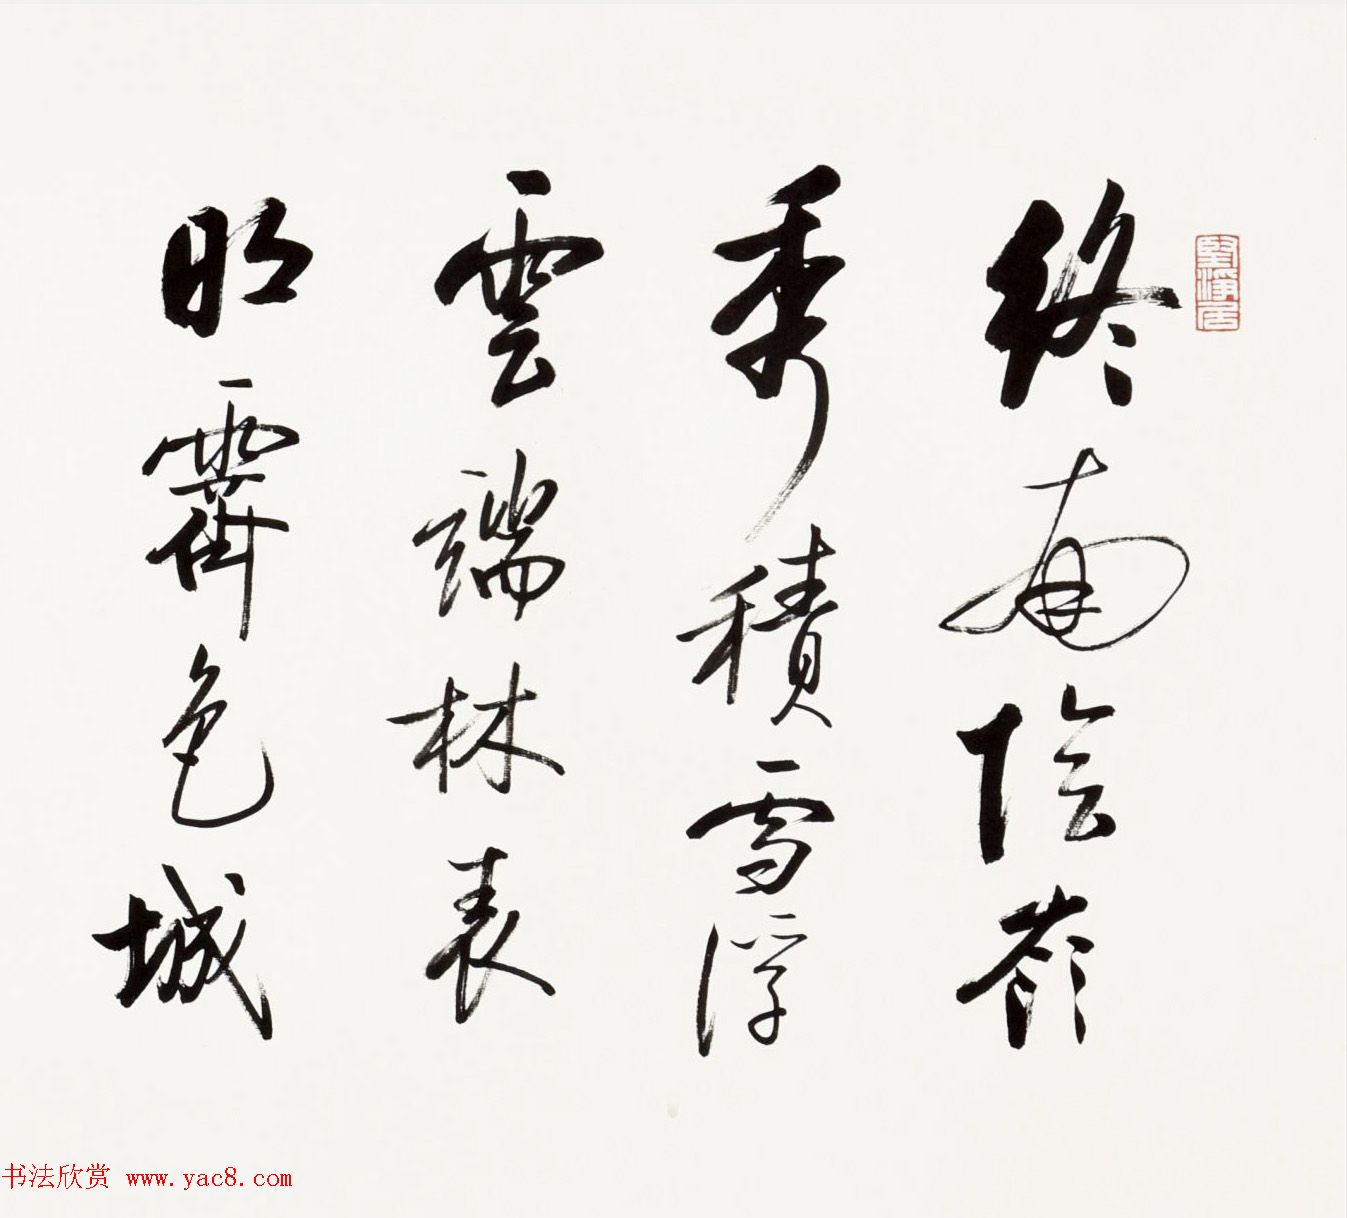 堅淨居
終南陰嶺
秀積雪浮
雲端林表
明霽色城
书法欣赏 www.yac8.com